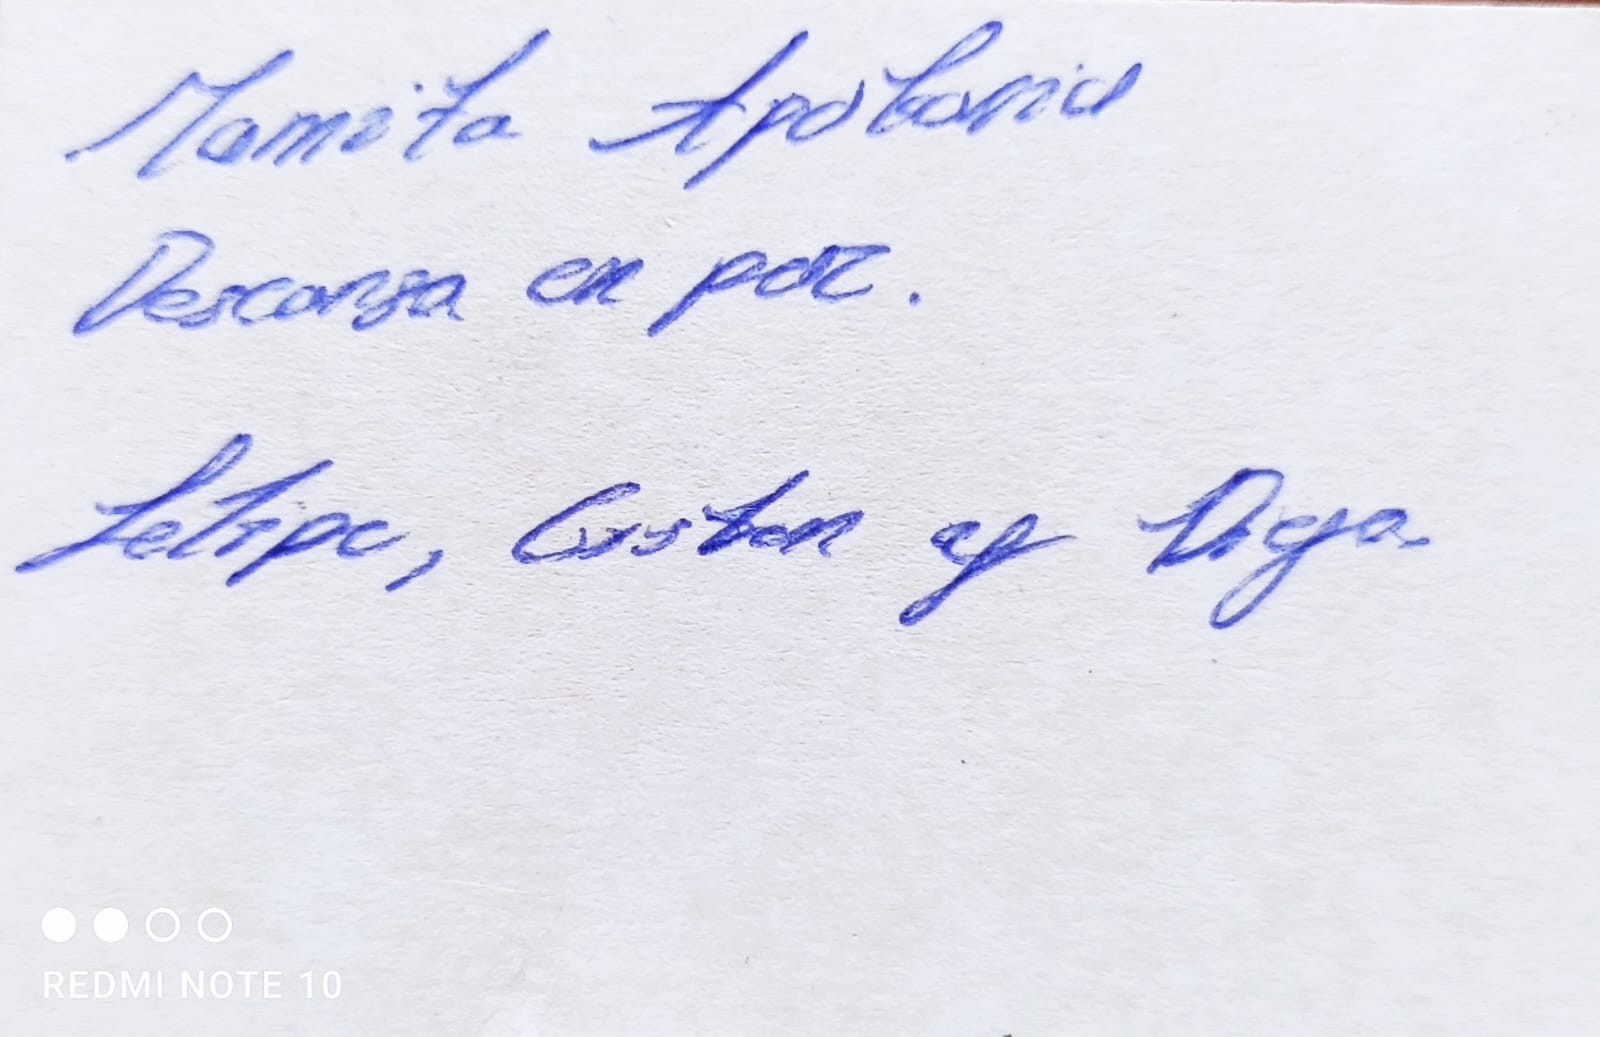 Mamita Apolonia
Descansa en paz.
Felipe, Cristian y Diego.
REDMI NOTE 10